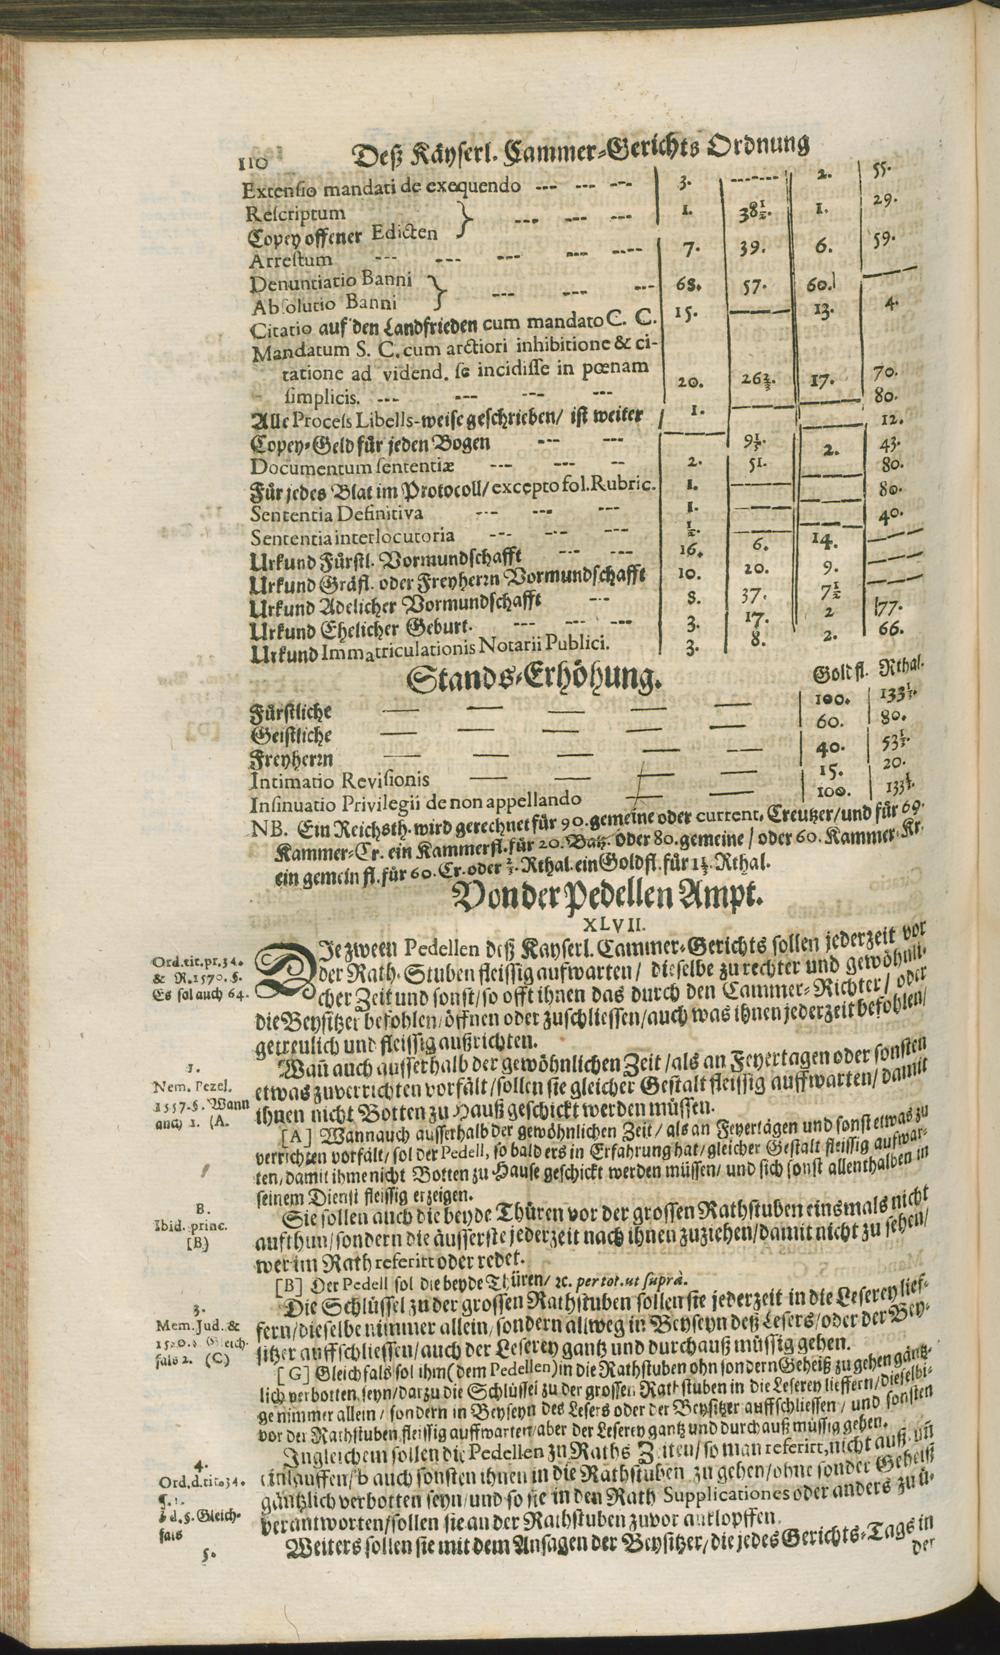 110 Deß Käyserl. Cammer-Gerichts Ordnung
Extensio mandati de exequendo --- --- --- 3. ------- 2. 55.
Rescriptum
Copey offener Edicten } --- --- --- 1. 38½. 1. 29.
Arrestum --- --- --- --- ---- 7. 39. 6. 59.
Denuntiatio Banni
Absolutio Banni } --- --- --- 68. 57. 60. ——
Citatio auf den Landfrieden cum mandato C. C. 15. —— 13. 4.
Mandatum S. C. cum arctiori inhibitione & ci-
tatione ad vidend. se incidisse in pœnam
simplicis. --- --- --- --- 20. 26⅔. 17. 70.
Alle Process Libells-weise geschrieben/ ist weiter 1. —— —— 80.
Copey-Geld für jeden Bogen --- --- —— 9⅓. —— 12.
Documentum sententiæ --- --- -- 2. 51. 2. 43.
Für jedes Blat im Protocoll/ excepto fol. Rubric. 1. —— —— 80.
Sententia Definitiva --- --- --- 1. —— —— 80.
Sententia interlocutoria --- --- --- ½. —— —— 40.
Urkund Fürstl. Vormundschafft --- --- 16. 6. 14. ——
Urkund Gräfl. oder Freyherrn Vormundschafft 10. 20. 9. ——
Urkund Adelicher Vormundschafft --- 8. 37. 7½ ——
Urkund Ehelicher Geburt. --- --- --- 3. 17. 2 77.
Urkund Immatriculationis Notarii Publici. 3. 8. 2. 66.
Stands-Erhöhung. Goldfl. Rthal.
Fürstliche — — — — — 100. 133⅓.
Geistliche — — — — — 60. 80.
Freyherrn — — — — — 40. 53⅓.
Intimatio Revisionis — — — — 15. 20.
Insinuatio Privilegii de non appellando — — 100. 133⅓.
NB. Ein Reichsth. wird gerechnet für 90. gemeine oder current. Creutzer/ und für 69.
Kammer-Cr. ein Kammerfl. für 20. Batz. oder 80. gemeine / oder 60. Kammer-Kr.
ein gemein fl. für 60. Cr. oder ⅔. Rthal. ein Goldfl. für 1⅓. Rthal.
Von der Pedellen Ampt.
XLVII.
Ord. tit. pr. 34.
& R. 1570. §.
Es sol auch 64.
DIe zween Pedellen deß Kayserl. Cammer-Gerichts sollen jederzeit vor
der Rath-Stuben fleissig aufwarten/ dieselbe zu rechter und gewöhnli-
cher Zeit und sonst/ so offt ihnen das durch den Cammer-Richter/ oder
die Beysitzer befohlen/ öffnen oder zuschliessen/ auch was ihnen jederzeit befohlen/
getreulich und fleissig außrichten.
1.
Mem. Pezel.
1557. §. Wann
auch 1. (A.
Wañ auch ausserhalb der gewöhnlichen Zeit/ als an Feyertagen oder sonsten
etwas zuverrichten vorfält/ sollen sie gleicher Gestalt fleissig auffwarten/ damit
ihnen nicht Botten zu Hauß geschickt werden müssen.
[A] Wann auch ausserhalb der gewöhnlichen Zeit/ als an Feyertägen und sonst etwas zu
verrichten vorfält/ sol der Pedell, so bald ers in Erfahrung hat/ gleicher Gestalt fleissig aufwar-
ten/ damit ihme nicht Botten zu Hause geschickt werden müssen/ und sich sonst allenthalben in
seinem Dienst fleissig erzeigen.
B.
Ibid. princ.
[B)
Sie sollen auch die beyde Thüren vor der grossen Rathstuben einsmals nicht
aufthun/ sondern die äusserste jederzeit nach ihnen zuziehen/ damit nicht zu sehen/
wer im Rath referirt oder redet.
[B] Der Pedell sol die beyde Thüren/ ꝛc. per tot. ut suprà.
3.
Mem. Jud. &
Gleich-
fals 2. (C)
Die Schlüssel zu der grossen Rathstuben sollen sie jederzeit in die Leserey lief-
fern/ dieselbe nimmer allein/ sondern allweg in Beyseyn deß Lesers/ oder der Bey-
sitzer auffschliessen/ auch der Leserey gantz und durchauß müssig gehen.
[G] Gleichfals sol ihm (dem Pedellen) in die Rathstuben ohn sondern Geheiß zu gehen gäntz-
lich verbotten seyn/ darzu die Schlüssel zu der grossen Rathstuben in die Leserey lieffern/ dieselbi-
ge nimmer allein/ sondern in Beyseyn des Lesers oder der Beysitzer auffschliessen/ und sonsten
vor der Rathstuben fleissig auffwarten/ aber der Leserey gantz und durchauß müssig gehen.
4.
Ord. d. tit. 34.
§. 1.
d. §. Gleich-
fals
Ingleichem sollen die Pedellen zu Raths Zeiten/ so man referirt, nicht auß- uñ
einlauffen/ so auch sonsten ihnen in die Rathstuben zu gehen/ ohne sonder Geheiß
gäntzlich verbotten seyn/ und so sie in den Rath Supplicationes oder anders zu ü-
berantworten/ sollen sie an der Rathstuben zuvor anklopffen.
5.
Weiters sollen sie mit dem Ansagen der Beysitzer/ die jedes Gerichts-Tags in
der